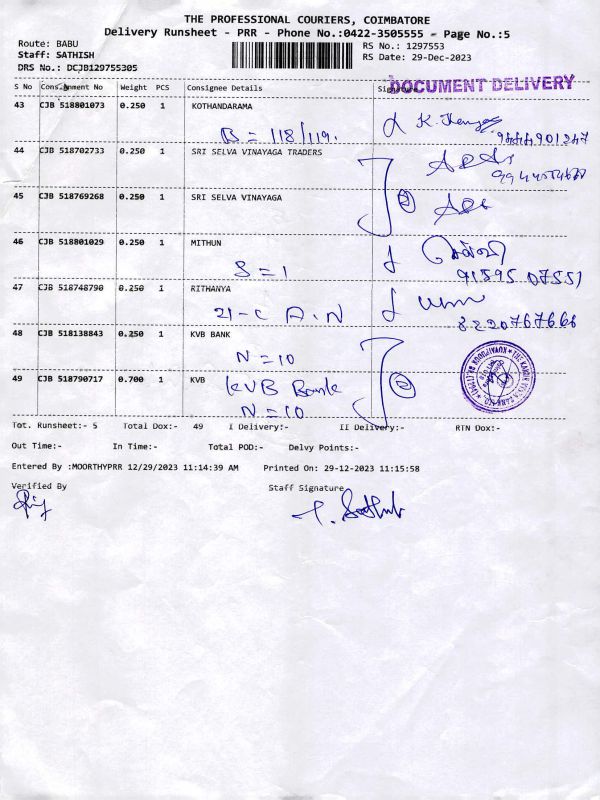 THE PROFESSIONAL COURIERS, COIMBATORE
Delivery Runsheet - PRR - Phone No.:0422-3505555 - Page No.:5
Route: BABU
RS No.: 1297553
Staff: SATHISH
RS Date: 29-Dec-2023
DRS No.: DCJB129755305
DOCUMENT DELIVERY
S No Consignment No Weight PCS Consignee Details Signature
43 CJB 518801073 0.250 1 KOTHANDARAMA
B = 118/119.
44 CJB 518702733 0.250 1 SRI SELVA VINAYAGA TRADERS
45 CJB 518769268 0.250 1 SRI SELVA VINAYAGA
2
46 CJB 518801029 0.250 1 MITHUN
S = 1
91595 07551
47 CJB 518748790 0.250 1 RITHANYA
21-C A.N
8220767666
48 CJB 518138843 0.250 1 KVB BANK
N = 10
49 CJB 518790717 0.700 1 KVB
KVB Bank
2
N = 10
Tot. Runsheet:- 5 Total Dox:- 49 I Delivery:- II Delivery:- RTN Dox:-
Out Time:- In Time:- Total POD:- Delvy Points:-
Entered By :MOORTHYPRR 12/29/2023 11:14:39 AM Printed On: 29-12-2023 11:15:58
Verified By Staff Signature